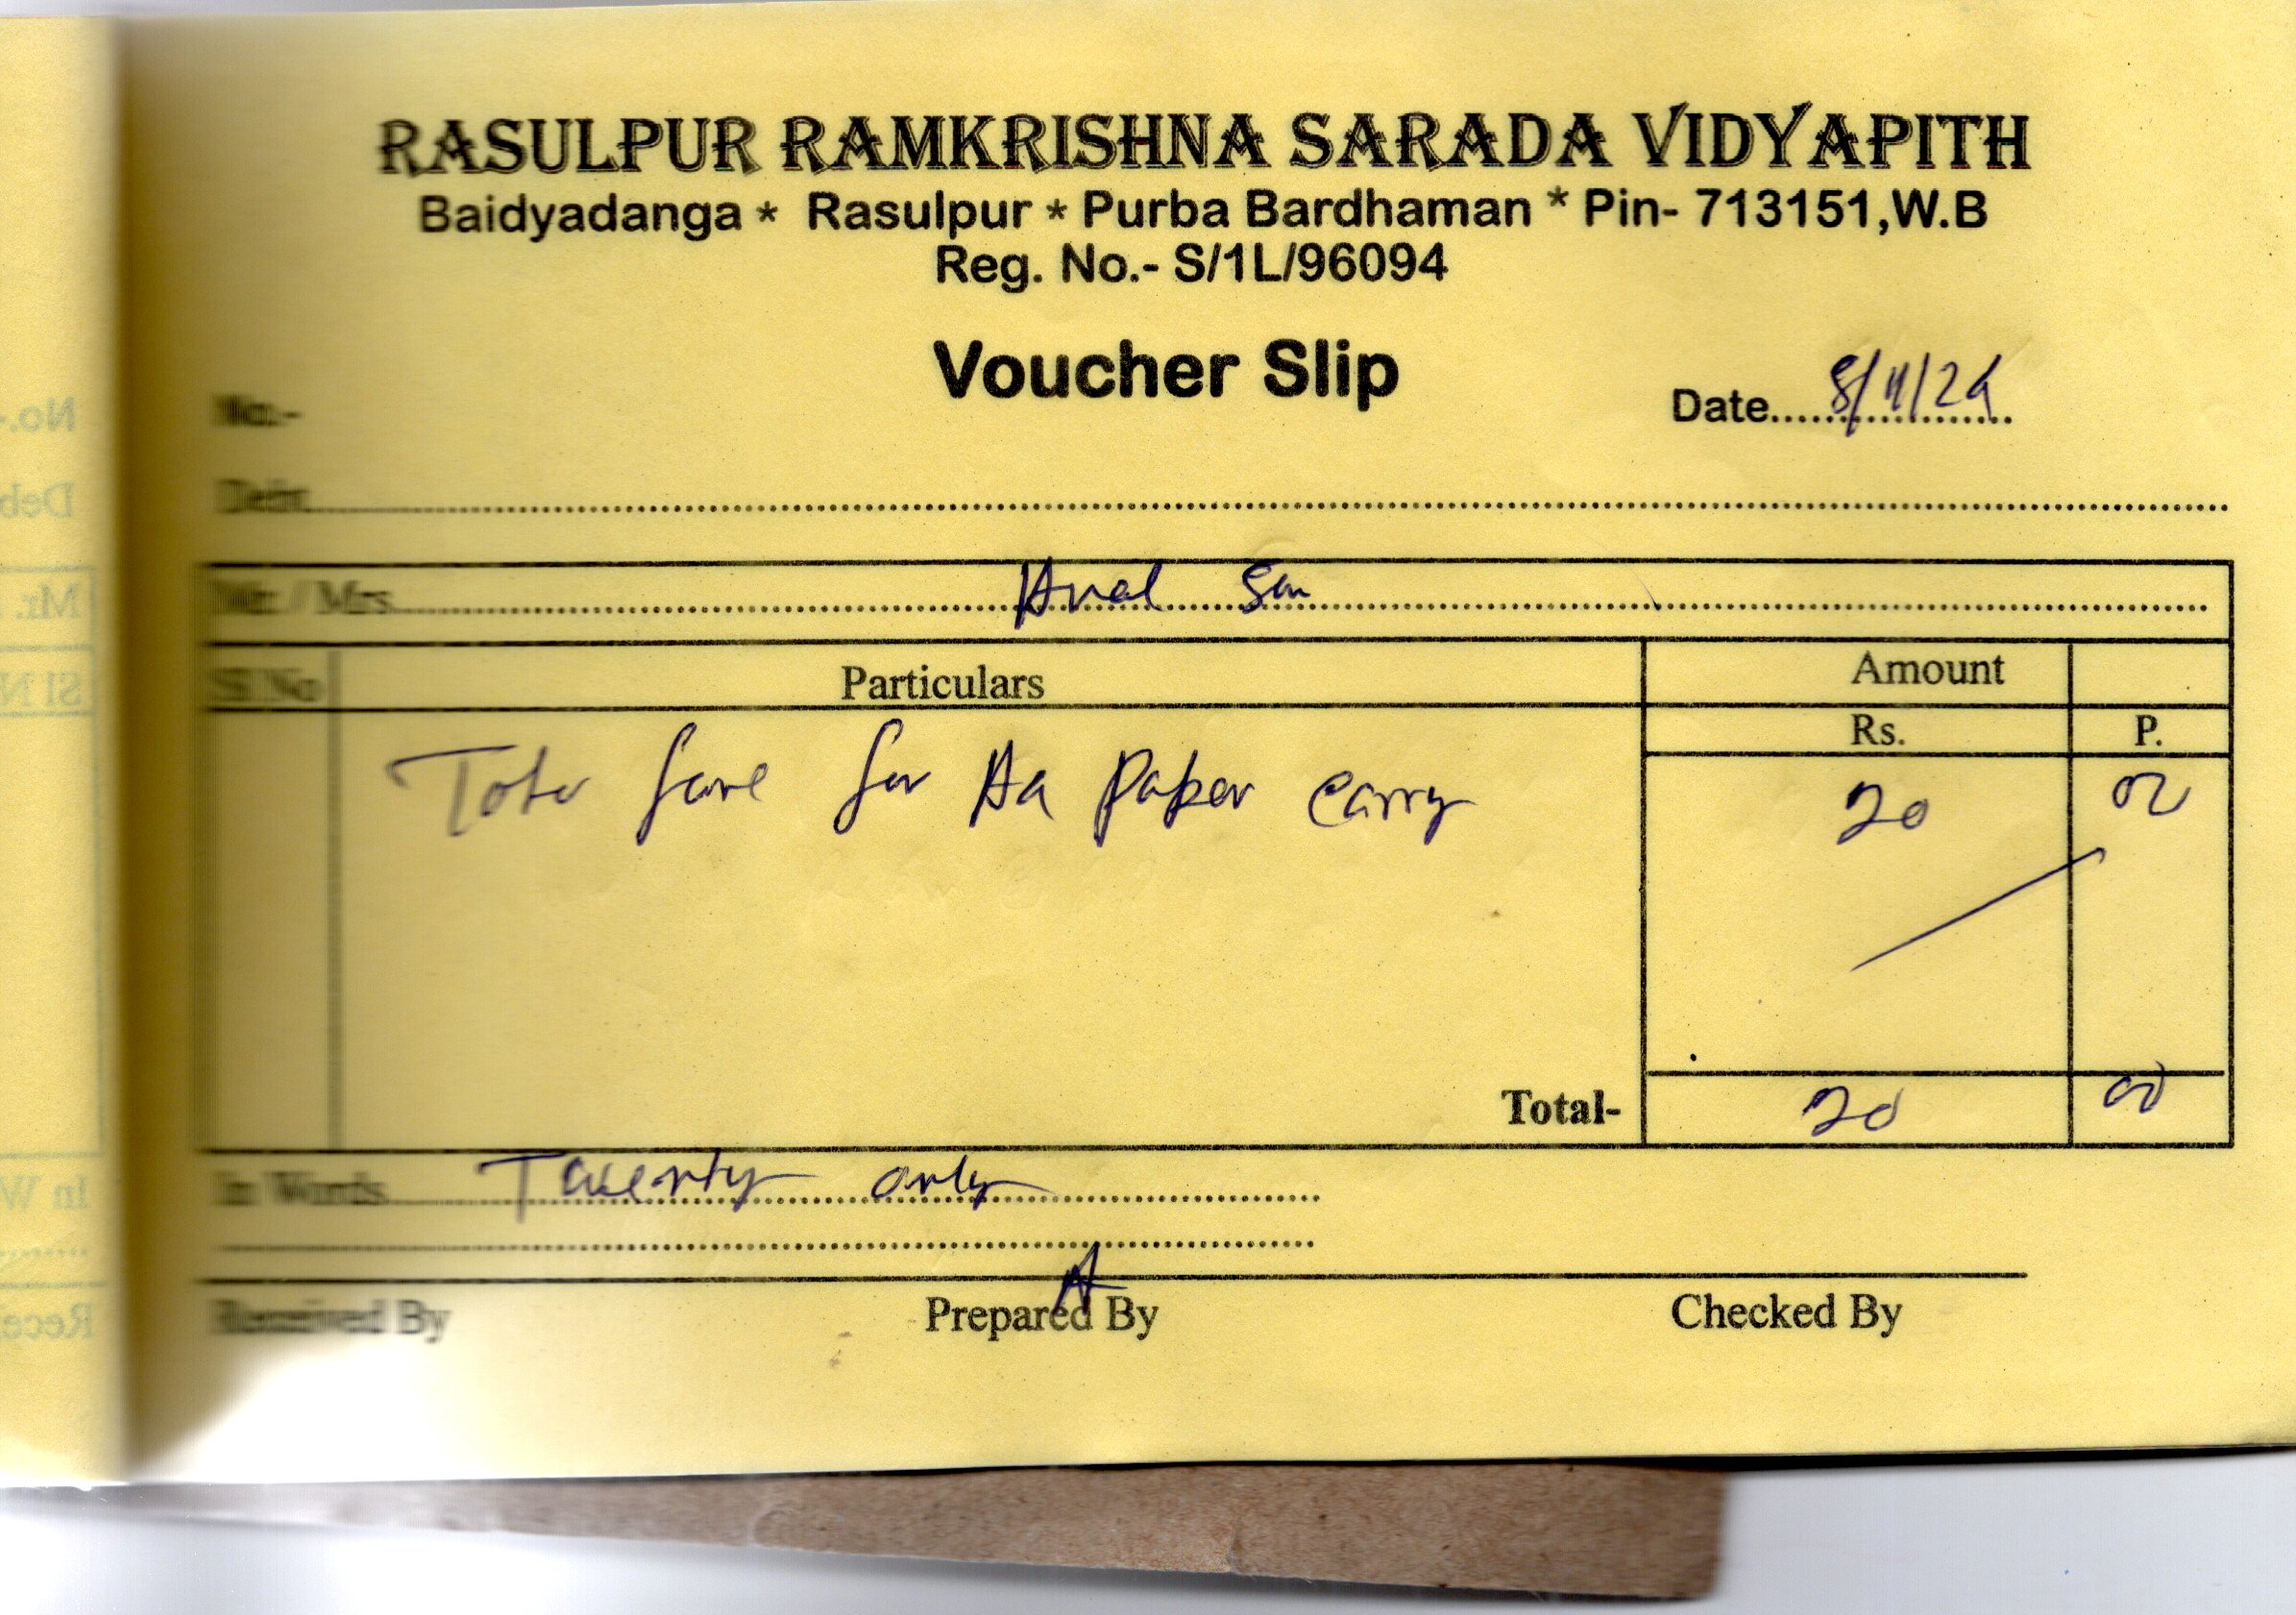 RASULPUR RAMKRISHNA SARADA VIDYAPITH
Baidyadanga * Rasulpur * Purba Bardhaman * Pin- 713151,W.B
Reg. No.- S/1L/96094
Voucher Slip
No.-
Date.....8/11/24
Debt
Mr. / Mrs. Sen
Sl No Particulars Amount
Rs. P.
Toto fare for A4 paper carry 20 00
Total- 20 00
In Words Twenty only
Received By Prepared By Checked By